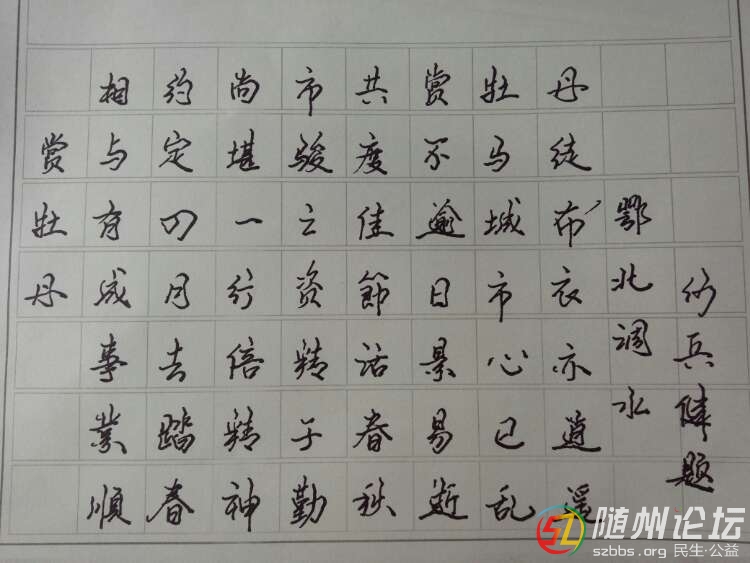 赏牡丹
相与有成事業順
约定四月去踏春
尚堪一行倍精神
市骏之资精于勤
共度佳節话春秋
赏不逾日景易逝
牡马城市心已乱
丹徒布衣亦逍遥
鄂北调水
兵题
随州论坛
szbbs.org 民生·公益